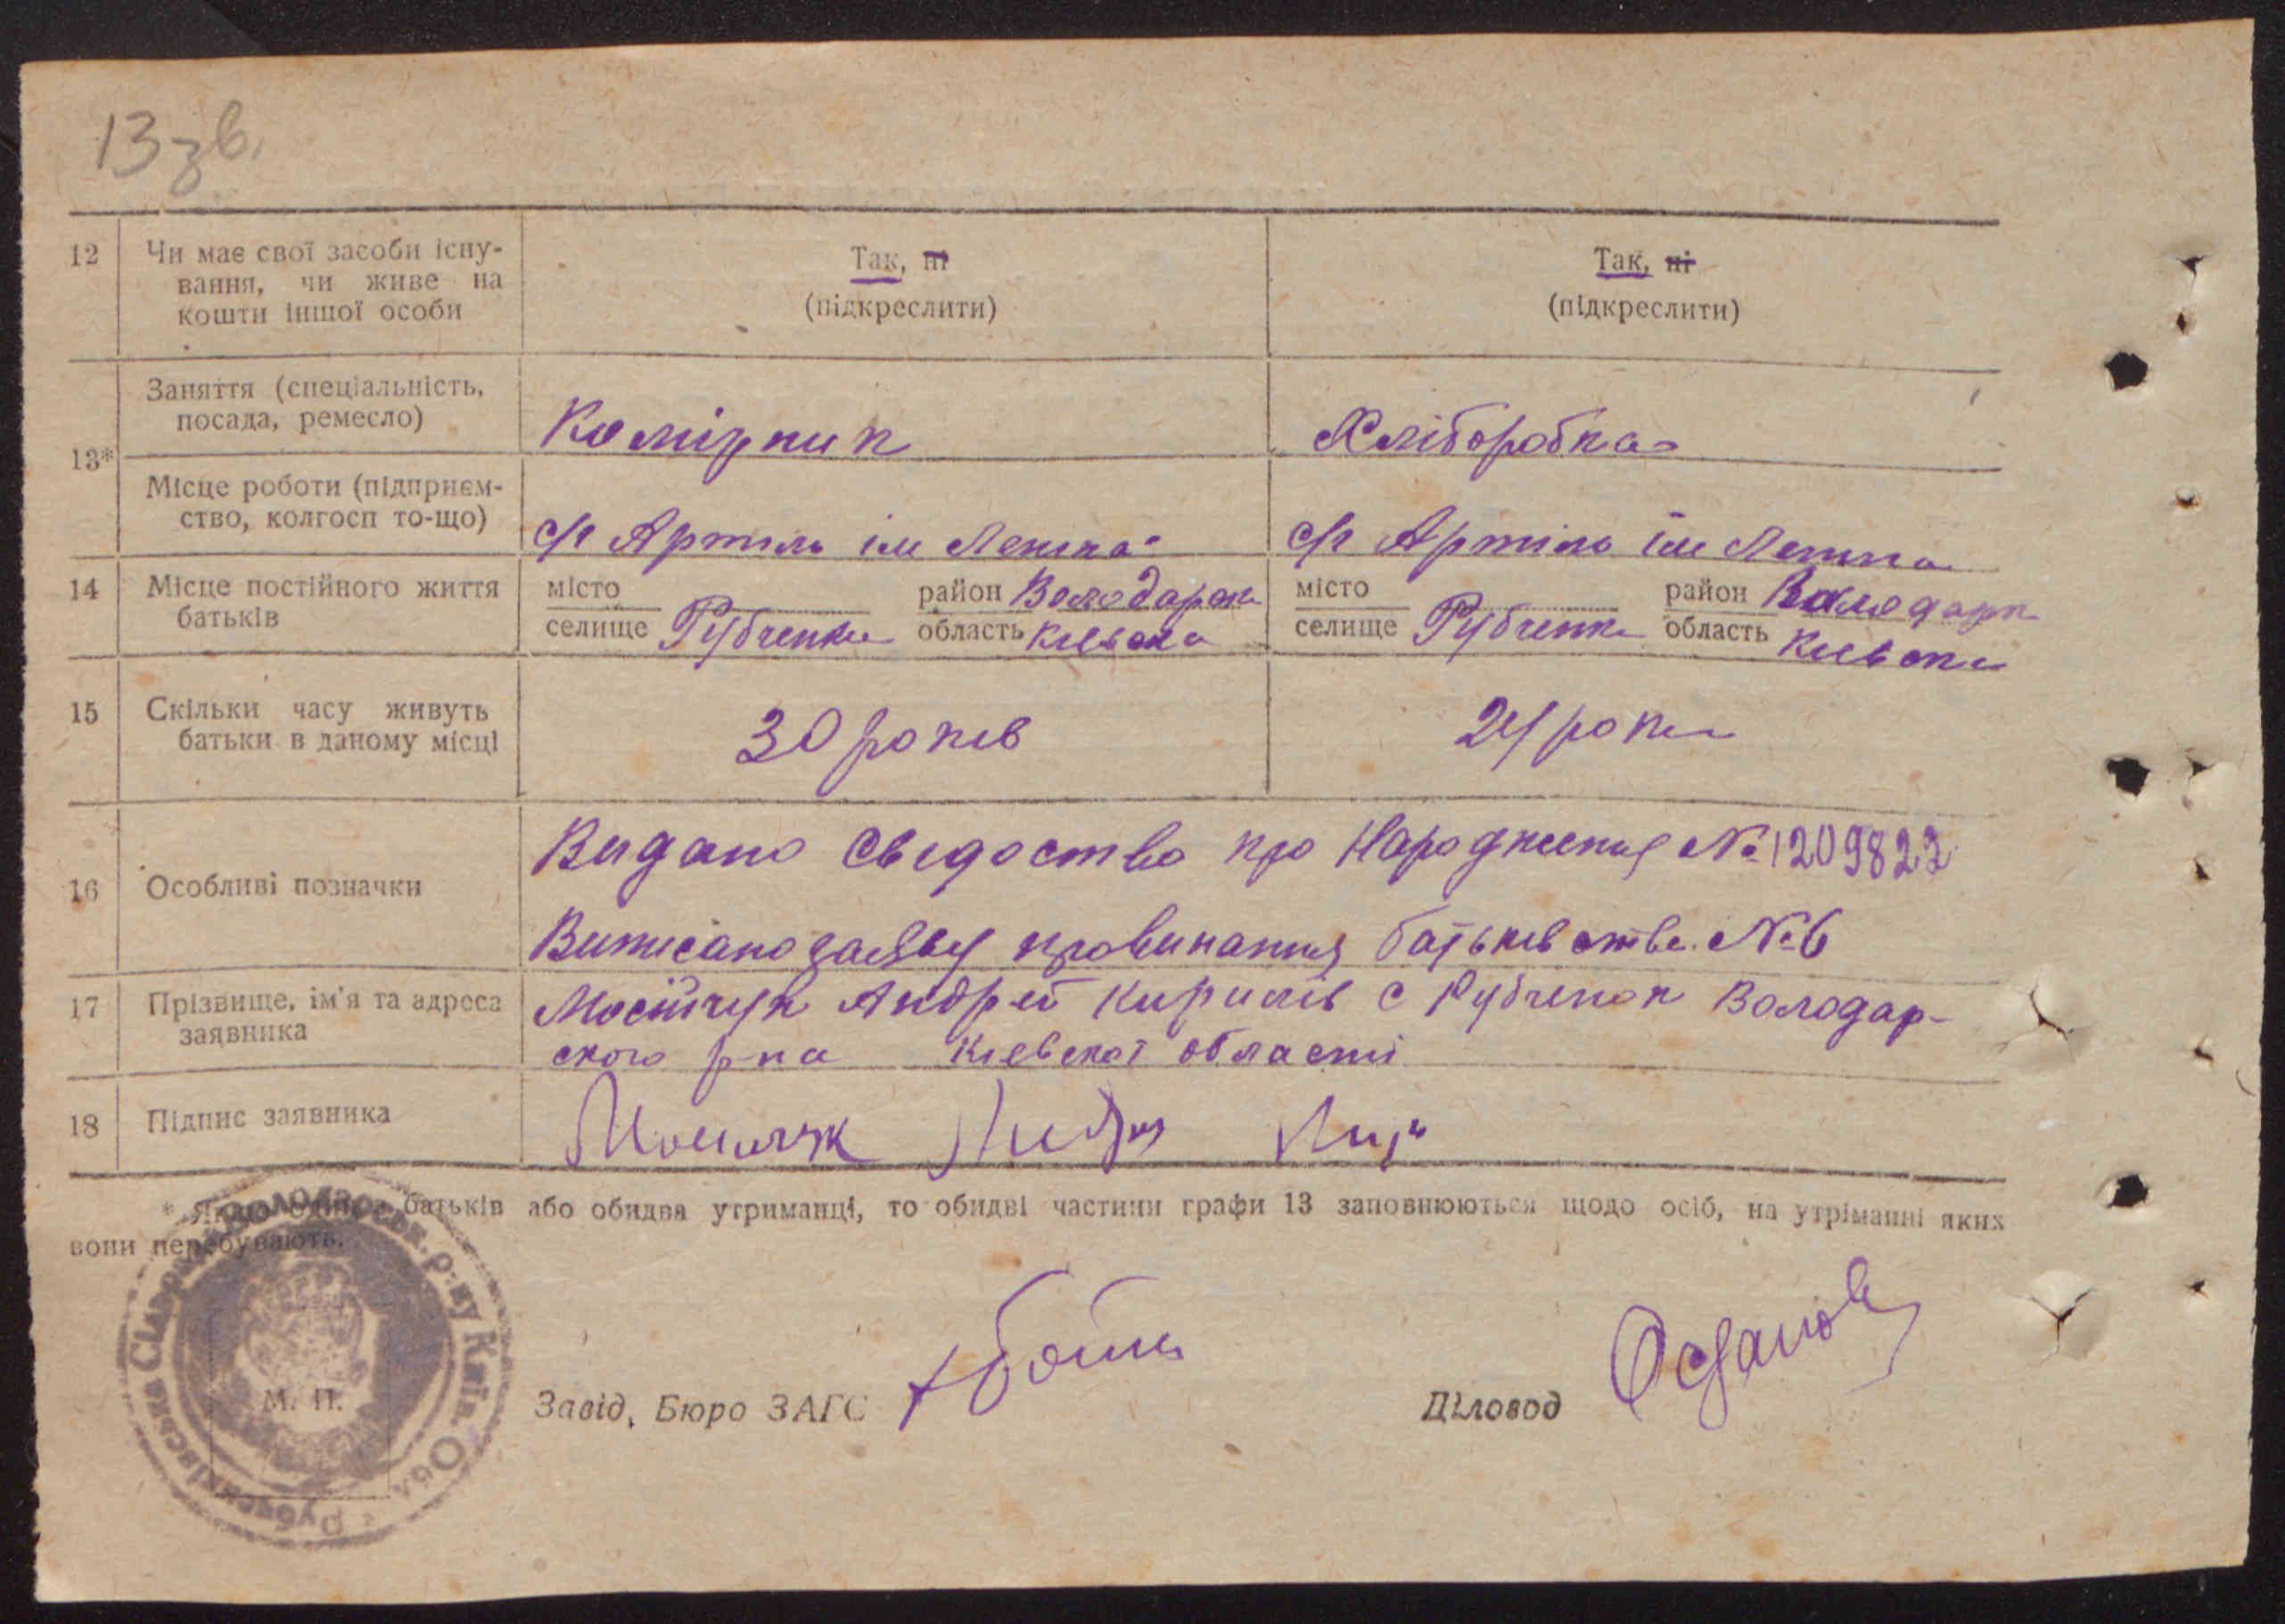 13 зв.
12 Чи має свої засоби існу-
вання, чи живе на
кошти іншої особи
Так, ні
(підкреслити)
Так, ні
(підкреслити)
13*
Заняття (спеціальність,
посада, ремесло)
Комірник
Хліборобка
Місце роботи (підприєм-
ство, колгосп то-що)
с/г Артиль ім Леніна
с/г Артіль ім Леніна
14 Місце постійного життя
батьків
місто
селище Рубченки
район Володарськ
область Київська
місто
селище Рубченки
район Володарк
область Киівська
15 Скільки часу живуть
батьки в даному місці
30 років
24 роки
16 Особливі позначки
Видано свідоство про Народження № 1209822
Виписано заяву провизнання батьківства №6
17 Прізвище, ім'я та адреса
заявника
Мосійчук Андрей Кирилів с Рубченок Володар-
ского р-на Кіевскої області
18 Підпис заявника
* Якщо один з батьків або обидва утриманці, то обидві частини графи 13 заповнюються щодо осіб, на утриманні яких
вони перебувають.
Рубченківська Сільрада Володарськ. р-ну Київ. Обл.
М. П.
Завід. Бюро ЗАГС
Діловод